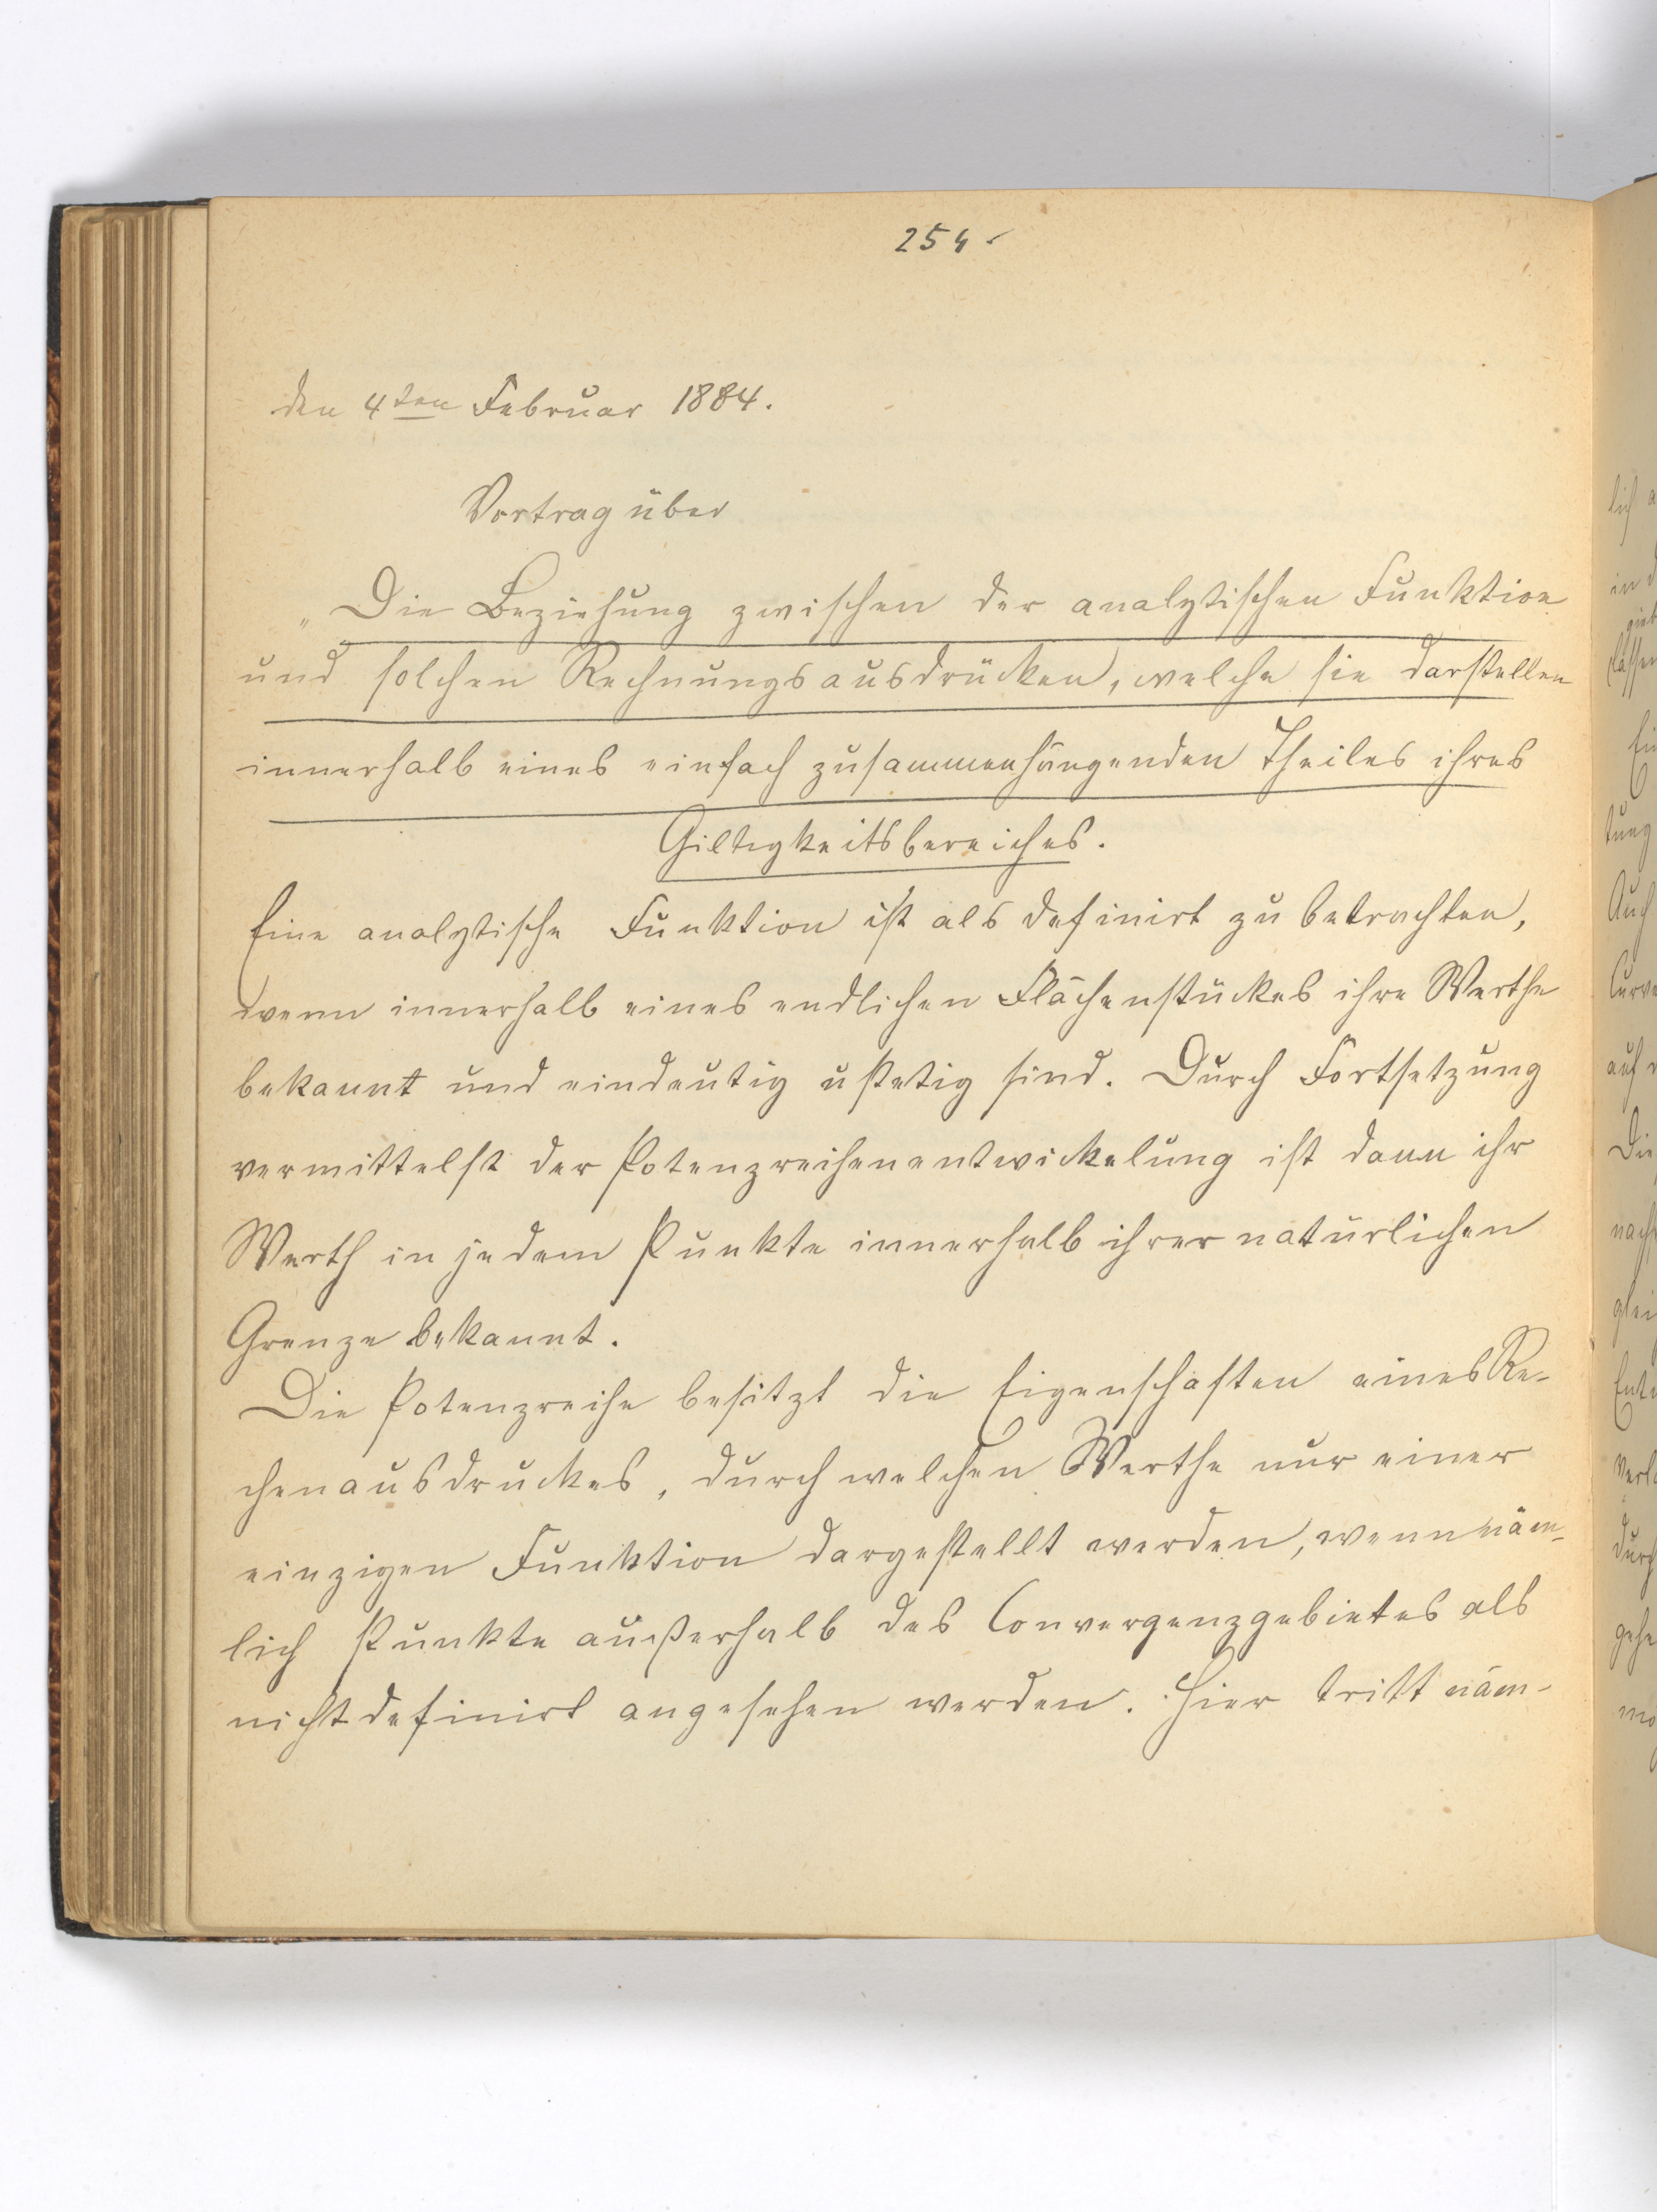 254
den 4ten Februar 1884.
Vortrag über
„Die Beziehung zwischen der analytischen Funktion
und solchen Rechnungsausdrücken, welche sie darstellen
innerhalb eines einfach zusammenhängenden Theiles ihres
Giltigkeitsbereiches.
Eine analytische Funktion ist als definirt zu betrachten,
wenn innerhalb eines endlichen Flächenstückes ihre Werthe
bekannt und eindeutig u stetig sind. Durch Fortsetzung
vermittelst der Potenzreihenentwickelung ist dann ihr
Werth in jedem Punkte innerhalb ihrer natürlichen
Grenze bekannt.
Die Potenzreihe besitzt die Eigenschaften eines Re-
chenausdruckes, durch welchen Werthe nur einer
einzigen Funktion dargestellt werden, wenn näm-
lich Punkte außerhalb des Convergenzgebietes als
nicht definirt angesehen werden. Hier tritt näm-